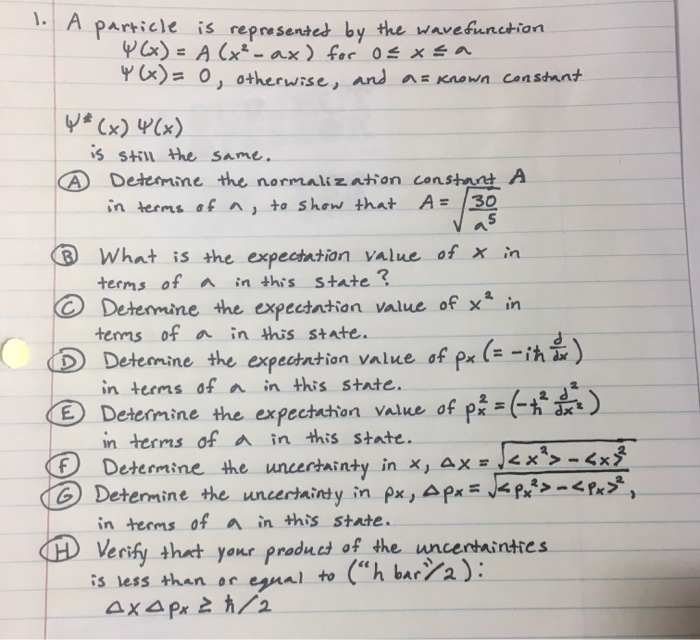 1. A particle is represented by the wavefunction
Ψ(x) = A (x² - ax) for 0 ≤ x ≤ a
Ψ(x) = 0, otherwise, and a = known constant
Ψ*(x) Ψ(x)
is still the same.
(A) Determine the normalization constant A
in terms of a, to show that A = √(30/a⁵)
(B) What is the expectation value of x in
terms of a in this state?
(C) Determine the expectation value of x² in
terms of a in this state.
(D) Determine the expectation value of px (= -iħ d/dx)
in terms of a in this state.
(E) Determine the expectation value of px² = (-ħ² d²/dx²)
in terms of a in this state.
(F) Determine the uncertainty in x, Δx = √(<x²> - <x>²)
(G) Determine the uncertainty in px, Δpx = √(<px²> - <px>²),
in terms of a in this state.
(H) Verify that your product of the uncertainties
is less than or equal to ("h bar"/2):
Δx Δpx ≥ ħ/2